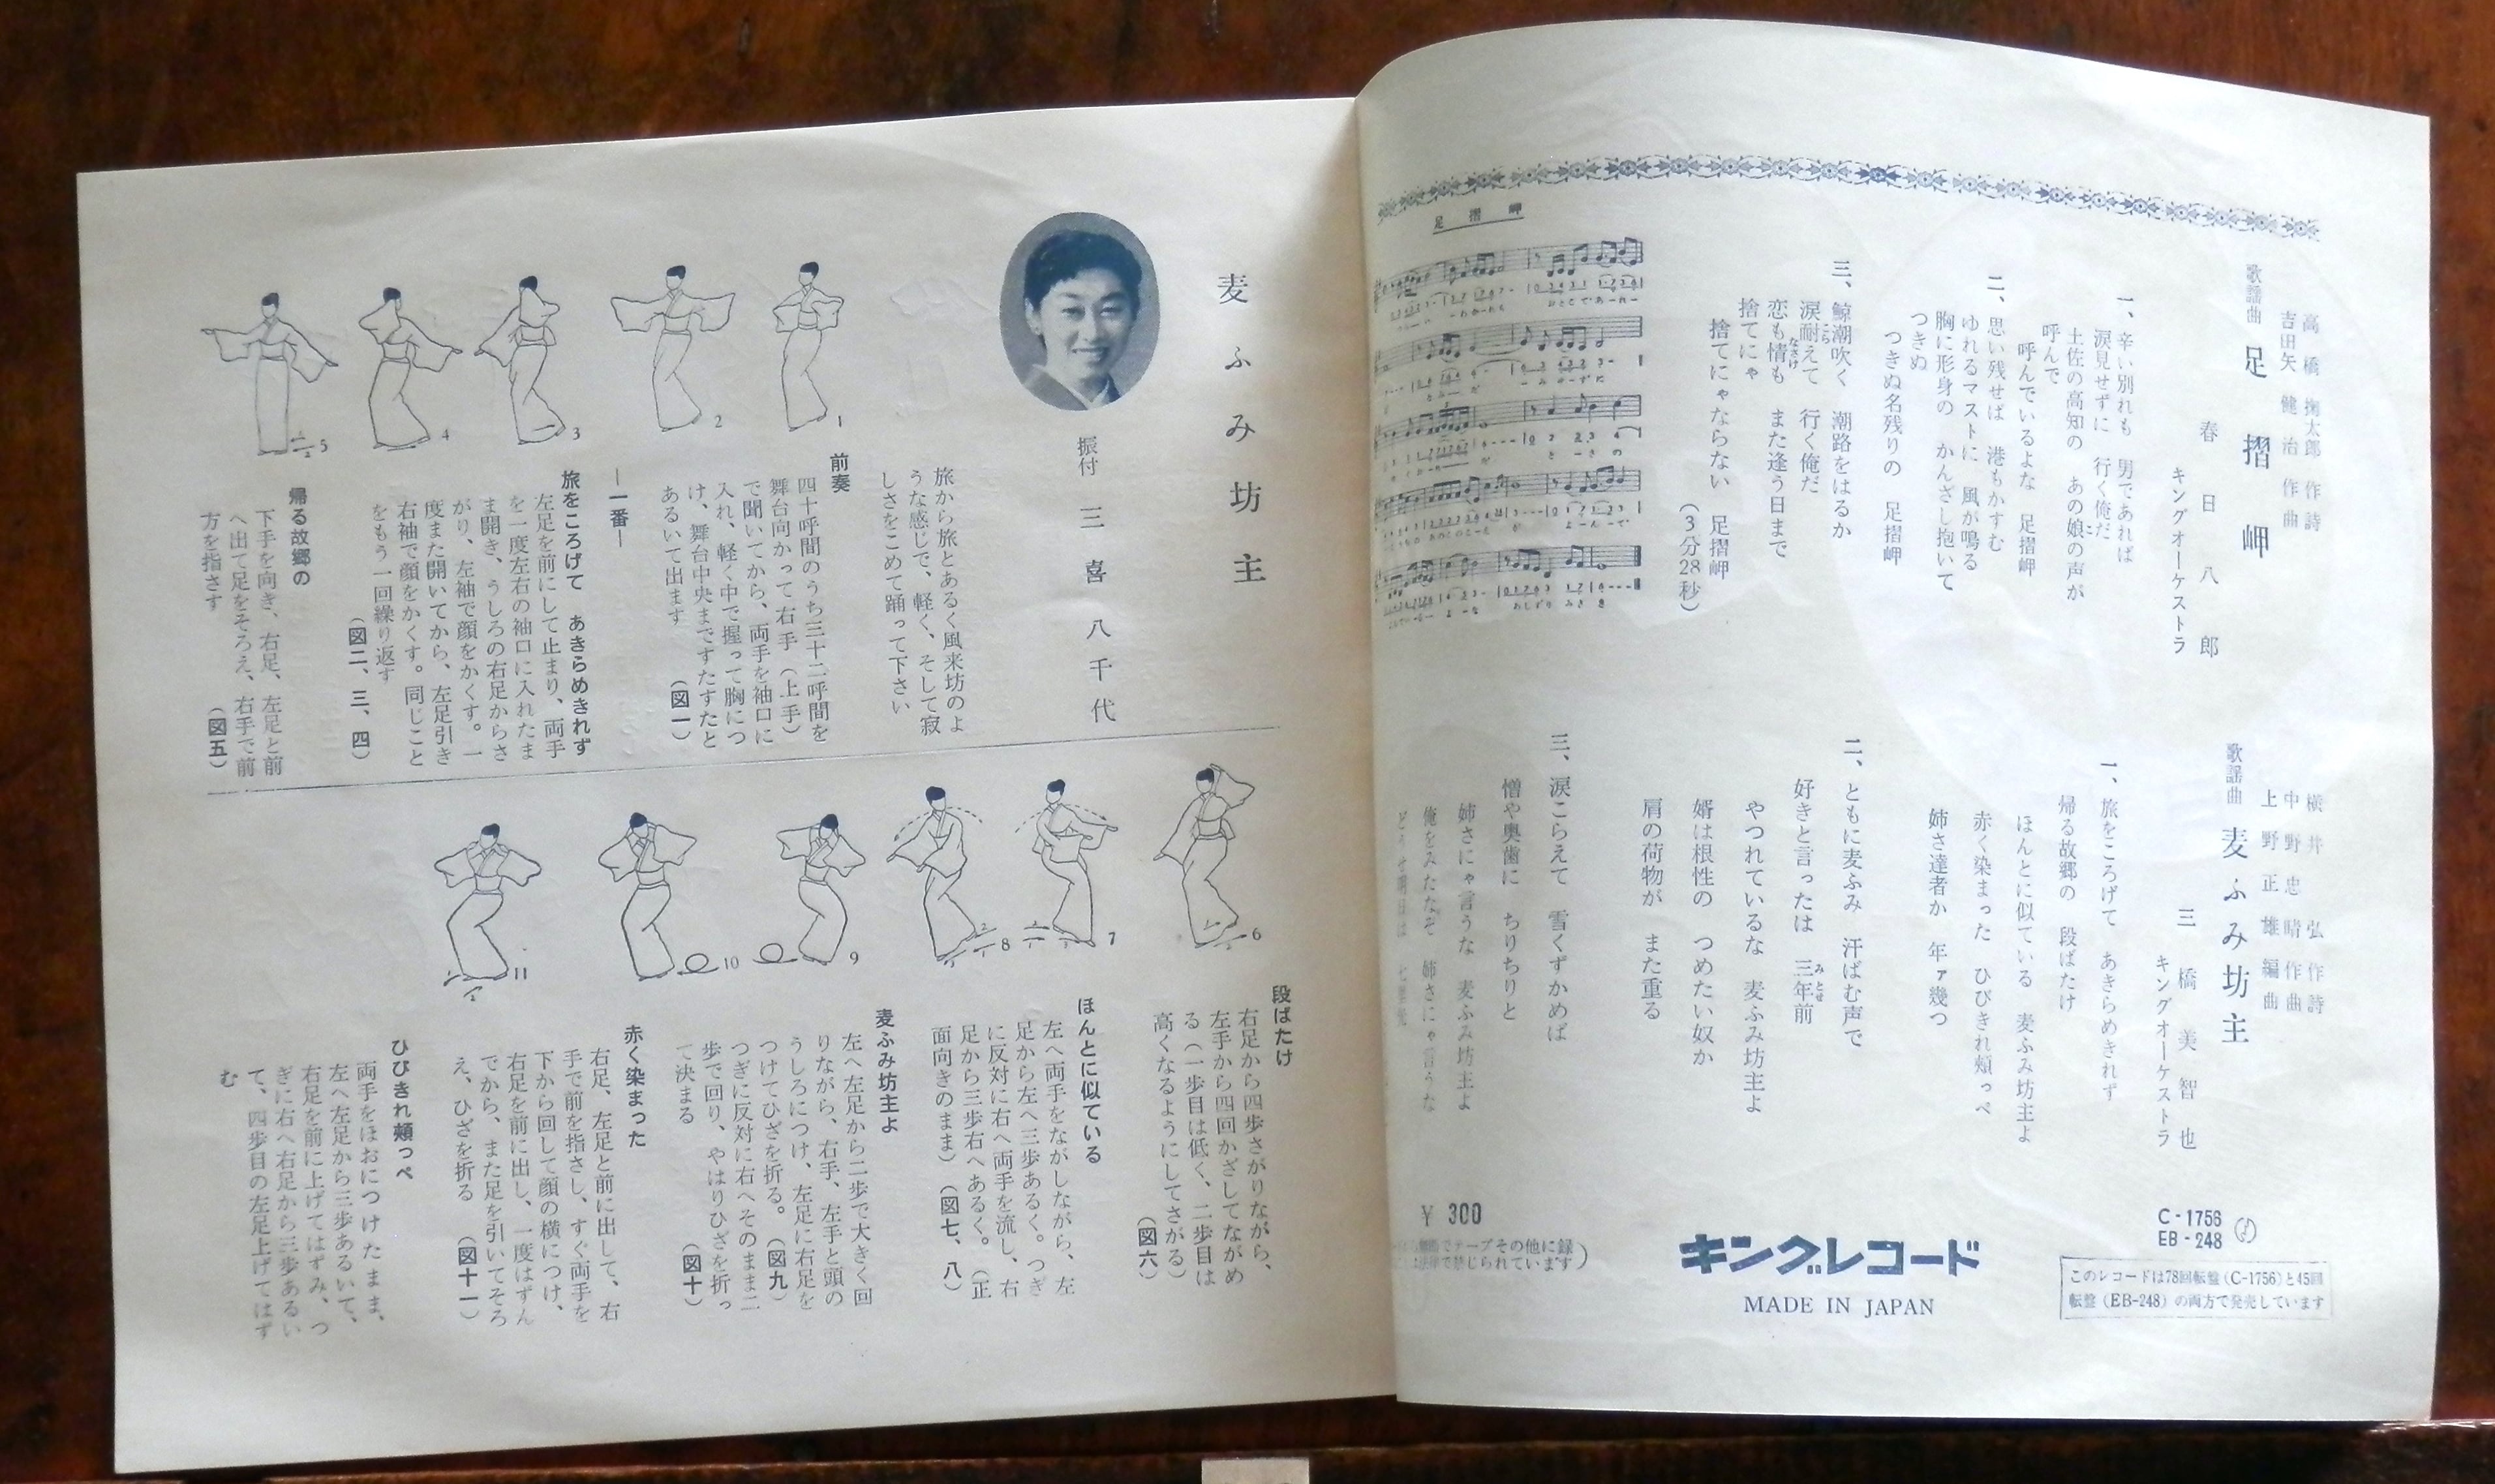 高橋掬太郎 作詩
吉田矢健治 作曲
歌謡曲 足摺岬
春日八郎
キングオーケストラ
一、辛い別れも 男であれば
涙見せずに 行く俺だ
土佐の高知の あの娘の声が
こ
呼んで
呼んでいるよな 足摺岬
二、思い残せば 港もかすむ
ゆれるマストに 風が鳴る
胸に形身の かんざし抱いて
つきぬ
つきぬ名残りの 足摺岬
三、鯨潮吹く 潮路をはるか
涙耐えて 行く俺だ
こら
恋も情も また逢う日まで
なさけ
捨てにゃ
捨てにゃならない 足摺岬
(3分28秒)
足摺岬
横井弘 作詩
中野忠晴 作曲
上野正雄 編曲
歌謡曲 麦ふみ坊主
三橋美智也
キングオーケストラ
一、旅をころげて あきらめきれず
帰る故郷の 段ばたけ
ほんとに似ている 麦ふみ坊主よ
赤く染まった ひびきれ頬っぺ
姉さ達者か 年ァ幾つ
二、ともに麦ふみ 汗ばむ声で
好きと言ったは 三年前
みとせ
やつれているな 麦ふみ坊主よ
婿は根性の つめたい奴か
肩の荷物が また重る
三、涙こらえて 雪くずかめば
憎や奥歯に ちりちりと
姉さにゃ言うな 麦ふみ坊主よ
俺をみたなぞ 姉さにゃ言うな
どうせ明日は
C-1756
EB-248
このレコードは78回転盤(C-1756)と45回
転盤(EB-248)の両方で発売しています
キングレコード
MADE IN JAPAN
¥ 300
でテープその他に録
法律で禁じられています)
麦ふみ坊主
振付 三喜八千代
旅から旅とあるく風来坊のよ
うな感じで、軽く、そして寂
しさをこめて踊って下さい
前奏
四十呼間のうち三十二呼間を
舞台向かって右手(上手)
で聞いてから、両手を袖口に
入れ、軽く中で握って胸につ
け、舞台中央まですたすたと
あるいて出ます (図一)
―一番―
旅をころげて あきらめきれず
左足を前にして止まり、両手
を一度左右の袖口に入れたま
ま開き、うしろの右足からさ
がり、左袖で顔をかくす。一
度また開いてから、左足引き
右袖で顔をかくす。同じこと
をもう一回繰り返す
(図二、三、四)
帰る故郷の
下手を向き、右足、左足と前
へ出て足をそろえ、右手で前
方を指さす (図五)
1
2
3
4
5
段ばたけ
右足から四歩さがりながら、
左手から四回かざしてながめ
る(一歩目は低く、二歩目は
高くなるようにしてさがる)
(図六)
ほんとに似ている
左へ両手をながしながら、左
足から左へ三歩あるく。つぎ
に反対に右へ両手を流し、右
足から三歩右へあるく。(正
面向きのまま) (図七、八)
麦ふみ坊主よ
左へ左足から二歩で大きく回
りながら、右手、左手と頭の
うしろにつけ、左足に右足を
つけてひざを折る。 (図九)
つぎに反対に右へそのまま二
歩で回り、やはりひざを折っ
て決まる (図十)
赤く染まった
右足、左足と前に出して、右
手で前を指さし、すぐ両手を
下から回して顔の横につけ、
右足を前に出し、一度はずん
でから、また足を引いてそろ
え、ひざを折る (図十一)
ひびきれ頬っぺ
両手をほおにつけたまま、
左へ左足から三歩あるいて、
右足を前に上げてはずみ、つ
ぎに右へ右足から三歩あるい
て、四歩目の左足上げてはず
む
6
7
8
9
10
11